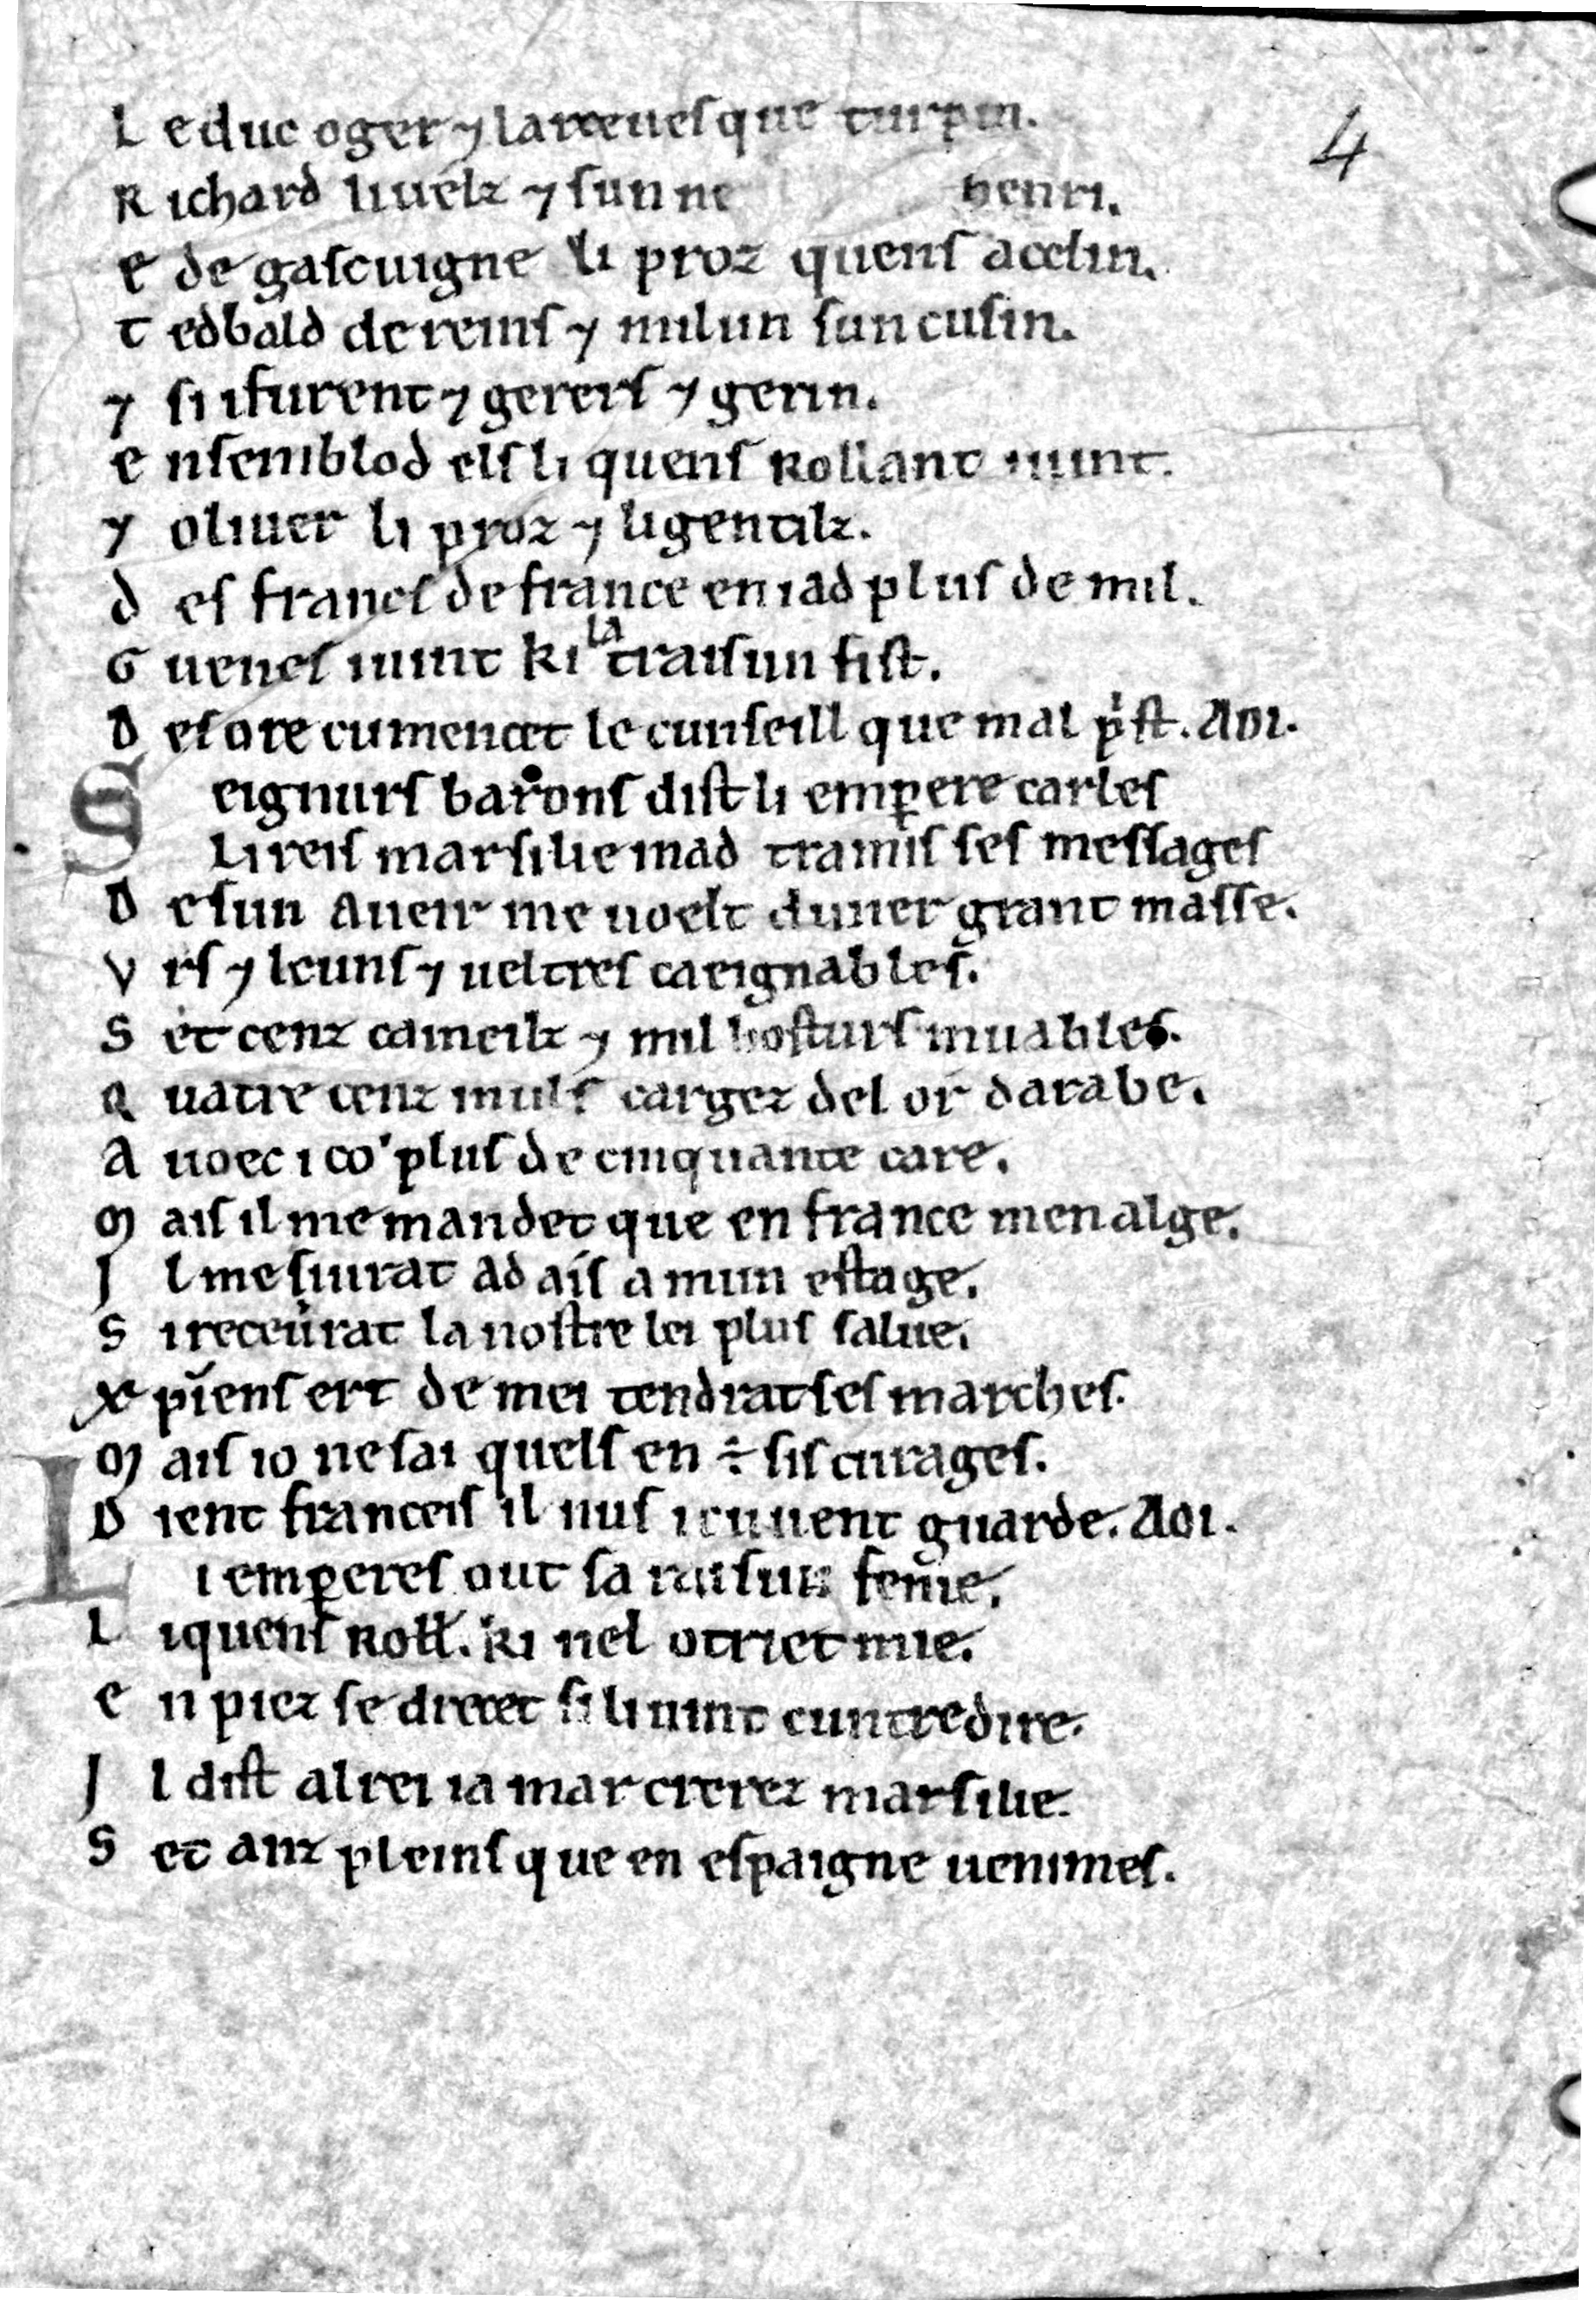 4
L e duc oger ⁊ larceuesque turpin.
R ichard li uelz ⁊ sun ne henri.
e de gascuigne li proz quens acelin.
t edbald de reins ⁊ milun sun cusin.
⁊ si i furent ⁊ gerers ⁊ gerin.
e nsemblod els li quens rollant i uint.
⁊ oliuer li proz ⁊ li gentilz.
d es francs de france en i ad plus de mil.
G uenes i uint ki la traisun fist.
D es ore cumencet le cunseill que mal p̍st. Aoi.
S eignurs barons dist li emꝑere carles
Li reis marsilie mad tramis ses messages
D e sun aueir me uoelt duner grant masse.
V rs ⁊ leuns ⁊ ueltres caeignables.
S et cenz cameilz ⁊ mil hosturs muables.
Q uatre cenz muls cargez del or darabe.
A uoec ico plus de cinquante care.
M ais il me mandet que en france men alge.
I l me siurat ad ais a mun estage.
S i receurat la nostre lei plus salue.
X p̄iens ert de mei tendrat ses marches.
M ais io ne sai quels en ÷ sis curages.
D ient franceis il nus i cuuent guarde. Aoi.
L i emꝑeres out sa raisun fenie.
L i quens roll̵. ki nel otriet mie.
e n piez se drecet si li uint cuntredire.
I l dist al rei ia mar crerez marsilie.
S et anz pleins que en espaigne uenimes.